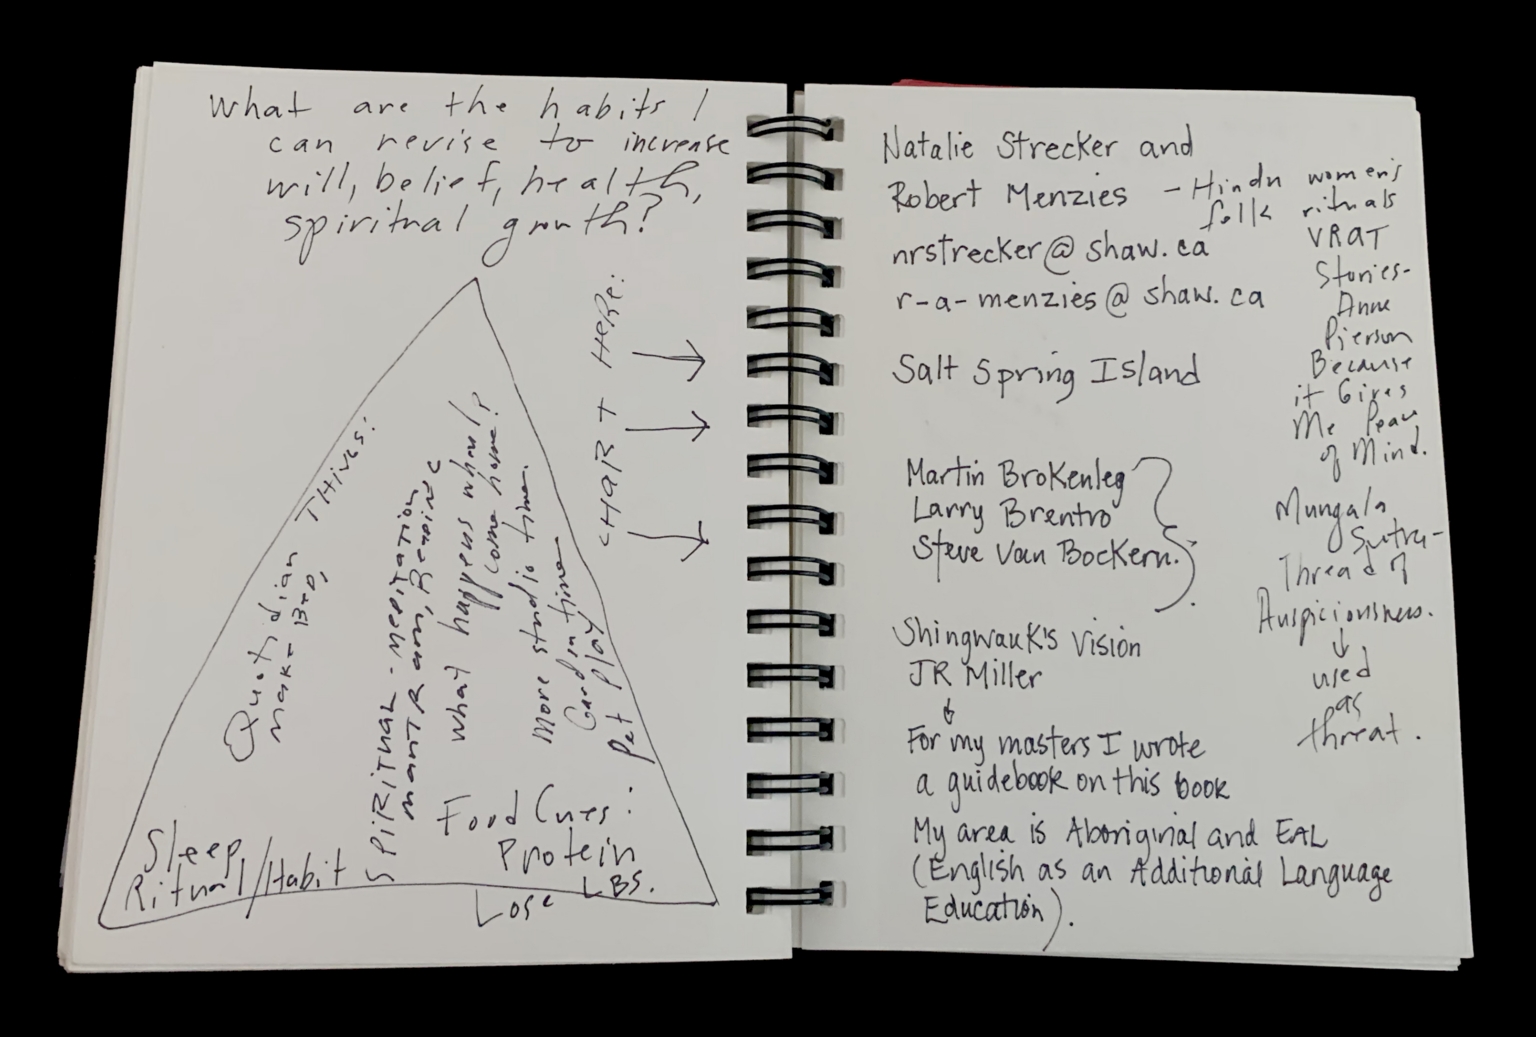 What are the habits I
can revise to increase
will, belief, health,
spiritual growth?
CHART HERE:
Quotidian THIVES:
make BED,
SPIRITUAL - MEDITATION
mantram,
what happens when I
come home?
More studio time
Garden time
Pet play
Food Cues:
Protein
Lose LBS.
Sleep
Ritual/Habit
Natalie Strecker and
Robert Menzies
nrstrecker@shaw.ca
r-a-menzies@shaw.ca
Salt Spring Island
Martin Brokenleg
Larry Brentro
Steve Van Bockern.
Shingwauk's Vision
JR Miller
For my masters I wrote
a guidebook on this book
My area is Aboriginal and EAL
(English as an Additional Language
Education).
- Hindu women's
folk rituals
VRAT
Stories-
Anne
Pierson
Because
it Gives
Me Peace
of Mind.
Mungala
Sutra-
Thread of
Auspiciousness.
used
as
threat.